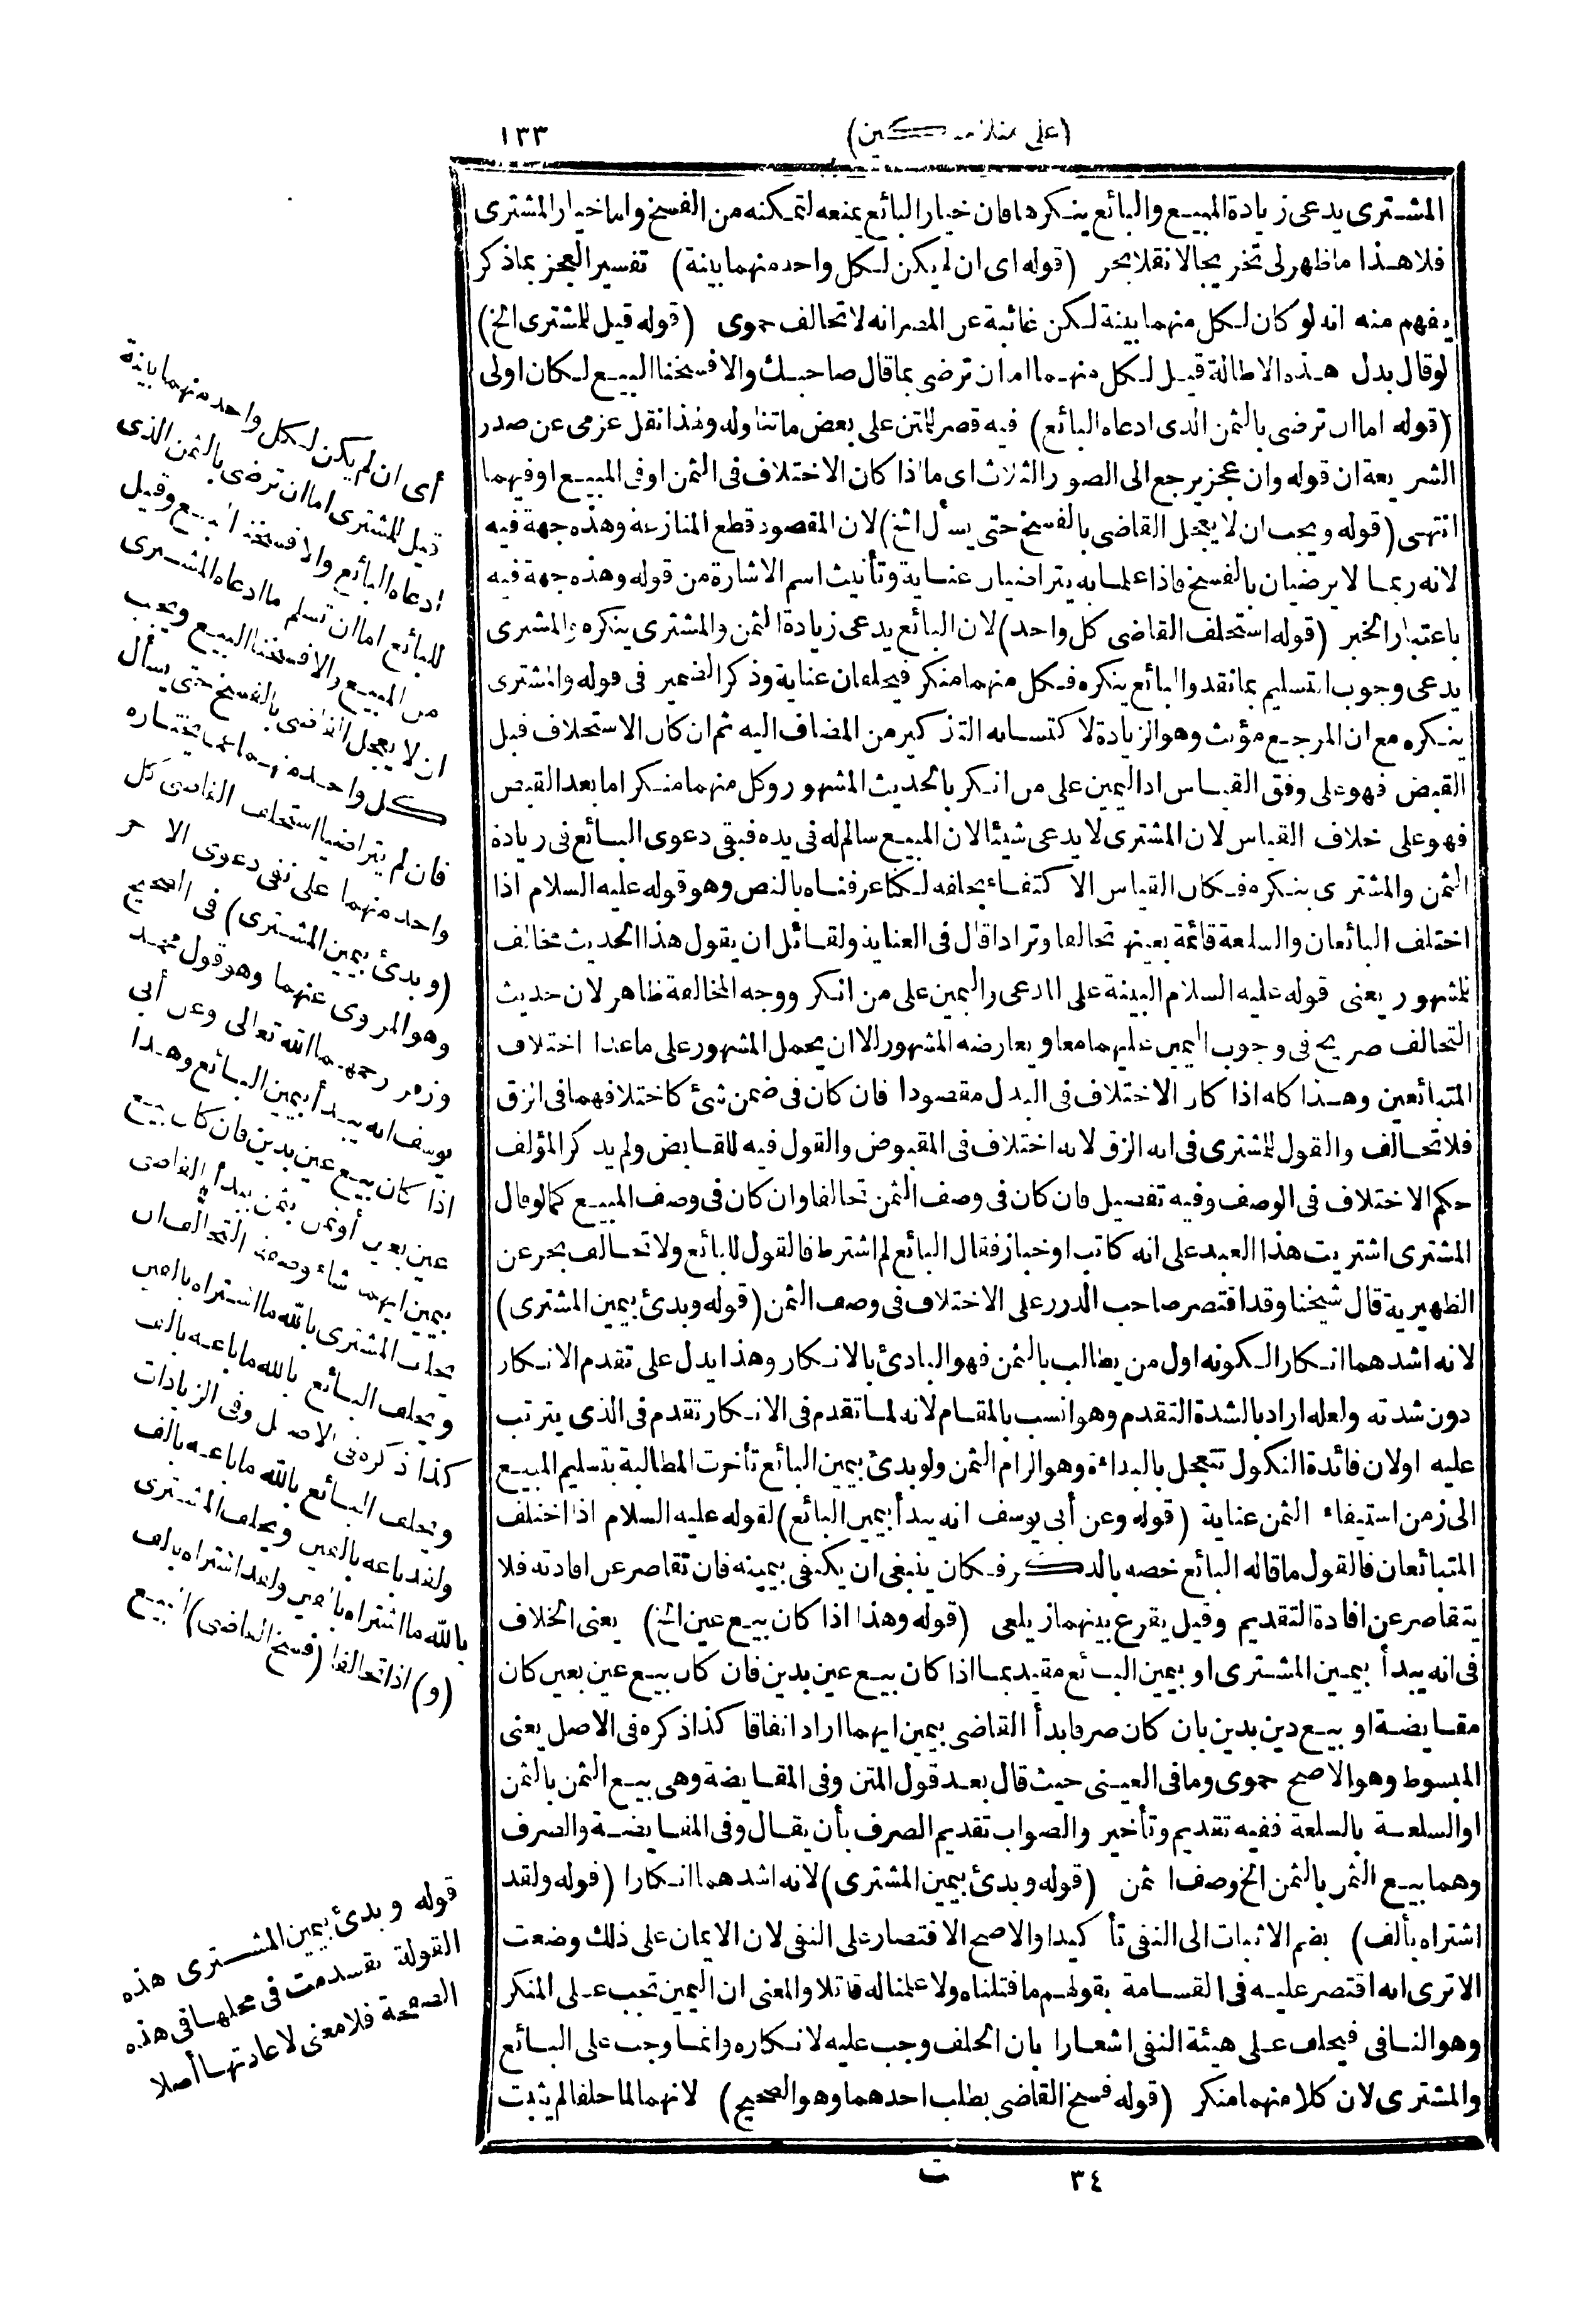 (على منلا مسكين) ١٣٣
المشترى يدعى زيادة المبيع والبائع ينكرها فان خيار البائع يمنعه لتمكنه من الفسخ واما خيار المشترى
فلا هذا ما ظهر لى تخريجا لا نقلا بحر (قوله اى ان لم يكن لكل واحد منهما بينة) تفسير العجز بما ذكر
يفهم منه انه لو كان لكل منهما بينة لكن غائبة عن المصر انه لا تحالف حموى (قوله قيل للمشترى الخ)
لو قال بدل هذه الاطالة قيل لكل منهما اما ان ترضى بما قال صاحبك والا فسخنا البيع لكان اولى
(قوله اما ان ترضى بالثمن الذى ادعاه البائع) فيه قصر للمتن على بعض ما تناوله ولهذا نقل عزمى عن صدر
الشريعة ان قوله وان عجز يرجع الى الصور الثلاث اى ما اذا كان الاختلاف فى الثمن او فى المبيع او فيهما
انتهى (قوله ويجب ان لا يعجل القاضى بالفسخ حتى يسأل الخ) لان المقصود قطع المنازعة وهذه جهة فيه
لانه ربما لا يرضيان بالفسخ فاذا علما به يتراضيان عناية وتأنيث اسم الاشارة من قوله وهذه جهة فيه
باعتبار الخبر (قوله استحلف القاضى كل واحد) لان البائع يدعى زيادة الثمن والمشترى ينكره والمشترى
يدعى وجوب التسليم بما نقد والبائع ينكره فكل منهما منكر فيحلفان عناية وذكر الضمير فى قوله والمشترى
ينكره مع ان المرجع مؤنث وهو الزيادة لاكتسابه التذكير من المضاف اليه ثم ان كان الاستحلاف قبل
القبض فهو على وفق القياس اذ اليمين على من انكر بالحديث المشهور وكل منهما منكر اما بعد القبض
فهو على خلاف القياس لان المشترى لا يدعى شيئا لان المبيع سالم له فى يده فبقى دعوى البائع فى زيادة
الثمن والمشترى ينكره فكان القياس الاكتفاء بحلفه لكنا عرفناه بالنص وهو قوله عليه السلام اذا
اختلف البائعان والسلعة قائمة بعينها تحالفا وترادا قال فى العناية ولقائل ان يقول هذا الحديث مخالف
للمشهور يعنى قوله عليه السلام البينة على المدعى واليمين على من انكر ووجه المخالفة ظاهر لان حديث
التحالف صريح فى وجوب اليمين عليهما معا ويعارضه المشهور الا ان يحمل المشهور على ما عدا اختلاف
المتبائعين وهذا كله اذا كان الاختلاف فى البدل مقصودا فان كان فى ضمن شئ كاختلافهما فى الزق
فلا تحالف والقول للمشترى فى انه الزق لانه اختلاف فى المقبوض والقول فيه للقابض ولم يذكر المؤلف
حكم الاختلاف فى الوصف وفيه تفصيل فان كان فى وصف الثمن تحالفا وان كان فى وصف المبيع كما لو قال
المشترى اشتريت هذا العبد على انه كاتب او خباز فقال البائع لم اشترط فالقول للبائع ولا تحالف بحر عن
الظهيرية قال شيخنا وقد اقتصر صاحب الدرر على الاختلاف فى وصف الثمن (قوله وبدئ بيمين المشترى)
لانه اشدهما انكارا لكونه اول من يطالب بالثمن فهو البادئ بالانكار وهذا يدل على تقدم الانكار
دون شدته ولعله اراد بالشدة التقدم وهو انسب بالمقام لانه لما تقدم فى الانكار تقدم فى الذى يترتب
عليه اولان فائدة النكول تتعجل بالبداءة وهو الزام الثمن ولو بدئ بيمين البائع تأخرت المطالبة بتسليم المبيع
الى زمن استيفاء الثمن عناية (قوله وعن أبى يوسف انه يبدأ بيمين البائع) لقوله عليه السلام اذا اختلف
المتبائعان فالقول ما قاله البائع خصه بالذكر فكان ينبغى ان يكفى بيمينه فان تقاصر عن افادته فلا
يتقاصر عن افادة التقديم وقيل يقرع بينهما زيلعى (قوله وهذا اذا كان بيع عين الخ) يعنى الخلاف
فى انه يبدأ بيمين المشترى او بيمين البائع مقيد بما اذا كان بيع عين بدين فان كان بيع عين بعين كان
مقايضة او بيع دين بدين بان كان صرفا بدأ القاضى بيمين ايهما اراد اتفاقا كذا ذكره فى الاصل يعنى
المبسوط وهو الاصح حموى وما فى العينى حيث قال بعد قول المتن وفى المقايضة وهى بيع الثمن بالثمن
او السلعة بالسلعة ففيه تقديم وتأخير والصواب تقديم الصرف بأن يقال وفى المقايضة والصرف
وهما بيع الثمن بالثمن الخ وصف الثمن (قوله وبدئ بيمين المشترى) لانه اشدهما انكارا (قوله ولقد
اشتراه بألف) بضم الاثبات الى النفى تأكيدا والاصح الاقتصار على النفى لان الايمان على ذلك وضعت
الا ترى انه اقتصر عليه فى القسامة بقولهم ما قتلناه ولا علمنا له قاتلا والمعنى ان اليمين تجب على المنكر
وهو النافى فيحلف على هيئة النفى اشعارا بان الحلف وجب عليه لانكاره وانما وجب على البائع
والمشترى لان كلا منهما منكر (قوله فسخ القاضى بطلب احدهما وهو الصحيح) لانهما لما حلفا لم يثبت
أى ان لم يكن لكل واحد منهما بينة
قيل للمشترى اما ان ترضى بالثمن الذى
ادعاه البائع والا فسخنا البيع وقيل
للبائع اما ان تسلم ما ادعاه المشترى
من المبيع والا فسخنا البيع ويجب
ان لا يعجل القاضى بالفسخ حتى يسأل
كل واحد منهما عما يختاره
فان لم يتراضيا استحلف القاضى كل
واحد منهما على نفى دعوى الآخر
(وبدئ بيمين المشترى) فى الصحيح
وهو المروى عنهما وهو قول محمد
وزفر رحمهما الله تعالى وعن أبى
يوسف انه يبدأ بيمين البائع وهذا
اذا كان بيع عين بدين فان كان بيع
عين بعين أو ثمن بثمن يبدأ القاضى
بيمين ايهما شاء وصفة التحالف ان
يحلف المشترى بالله ما اشتراه بالفين
ويحلف البائع بالله ما باعه بالف
كذا ذكره فى الاصل وفى الزيادات
ويحلف البائع بالله ما باعه بالف
ولقد باعه بالفين ويحلف المشترى
بالله ما اشتراه بالفين ولقد اشتراه بالف
(و) اذا تحالفا (فسخ القاضى) البيع
قوله وبدئ بيمين المشترى هذه
القولة تقدمت فى محلها فى هذه
الصحيفة فلا معنى لاعادتها أصلا
٣٤ ت